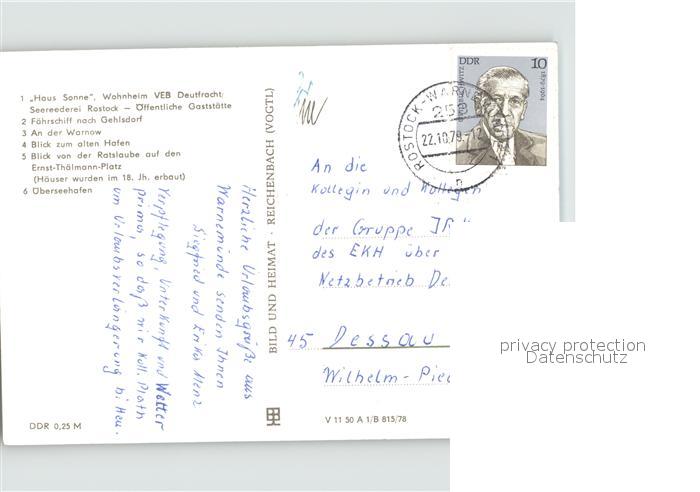 1 „Haus Sonne", Wohnheim VEB Deutfracht
Seereederei Rostock — Öffentliche Gaststätte
2 Fährschiff nach Gehlsdorf
3 An der Warnow
4 Blick zum alten Hafen
5 Blick von der Ratslaube auf den
Ernst-Thälmann-Platz
(Häuser wurden im 18. Jh. erbaut)
6 Überseehafen
Herzliche Urlaubsgrüße aus
Warnemünde senden Ihnen
Siegfried und Erika Menz
Verpflegung, Unterkunft und Wetter
prima, so daß wir Koll. Plath
um Urlaubsverlängerung bitten.
DDR 0,25 M
BILD UND HEIMAT · REICHENBACH (VOGTL)
V 11 50 A 1/B 815/78
DDR 10
1879-1964
ROSTOCK-WARNE
22.10.79-12
An die
Kollegin und Kollegen
der Gruppe
des EKH über
Netzbetrieb De
45 Dessau
Wilhelm-Piec
privacy protection
Datenschutz